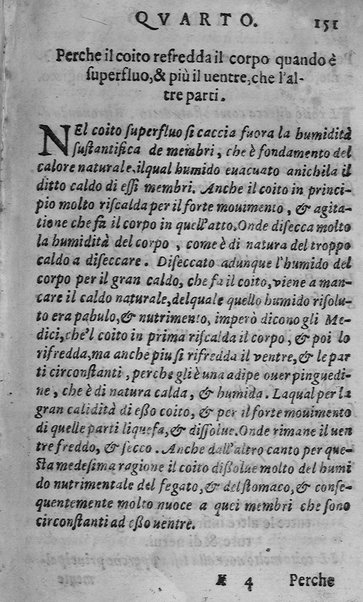 QVARTO. 151
Perche il coito refredda il corpo quando è
superfluo, & più il uentre, che l'al-
tre parti.
NEl coito superfluo si caccia fuora la humidità
sustantifica de membri, che è fondamento del
calore naturale, ilqual humido euacuato anichila il
ditto caldo di essi membri. Anche il coito in princi-
pio molto riscalda per il forte mouimento, & agita-
tione che fa il corpo in quell'atto. Onde disecca molto
la humidità del corpo, come è di natura del troppo
caldo a diseccare. Diseccato adunque l'humido del
corpo per il gran caldo, che fa il coito, viene a man-
care il caldo naturale, delquale quello humido risolu-
to era pabulo, & nutrimento, imperò dicono gli Me-
dici, che'l coito in prima riscalda il corpo, & poi lo
rifredda, ma anche piu si rifredda il ventre, & le par
ti circonstanti, perche gli è una adipe ouer pinguedi-
ne, che è di natura calda, & humida. Laqual per la
gran calidità di esso coito, & per il forte mouimento
di quelle parti liquefa, & dissolue. Onde rimane il uen
tre freddo, & secco. Anche dall'altro canto per que-
sta medesima ragione il coito dissolue molto del humi
do nutrimentale del fegato, & del stomaco, & conse-
quentemente molto nuoce a quei membri che sono
circonstanti ad esso uentre.
4 Perche